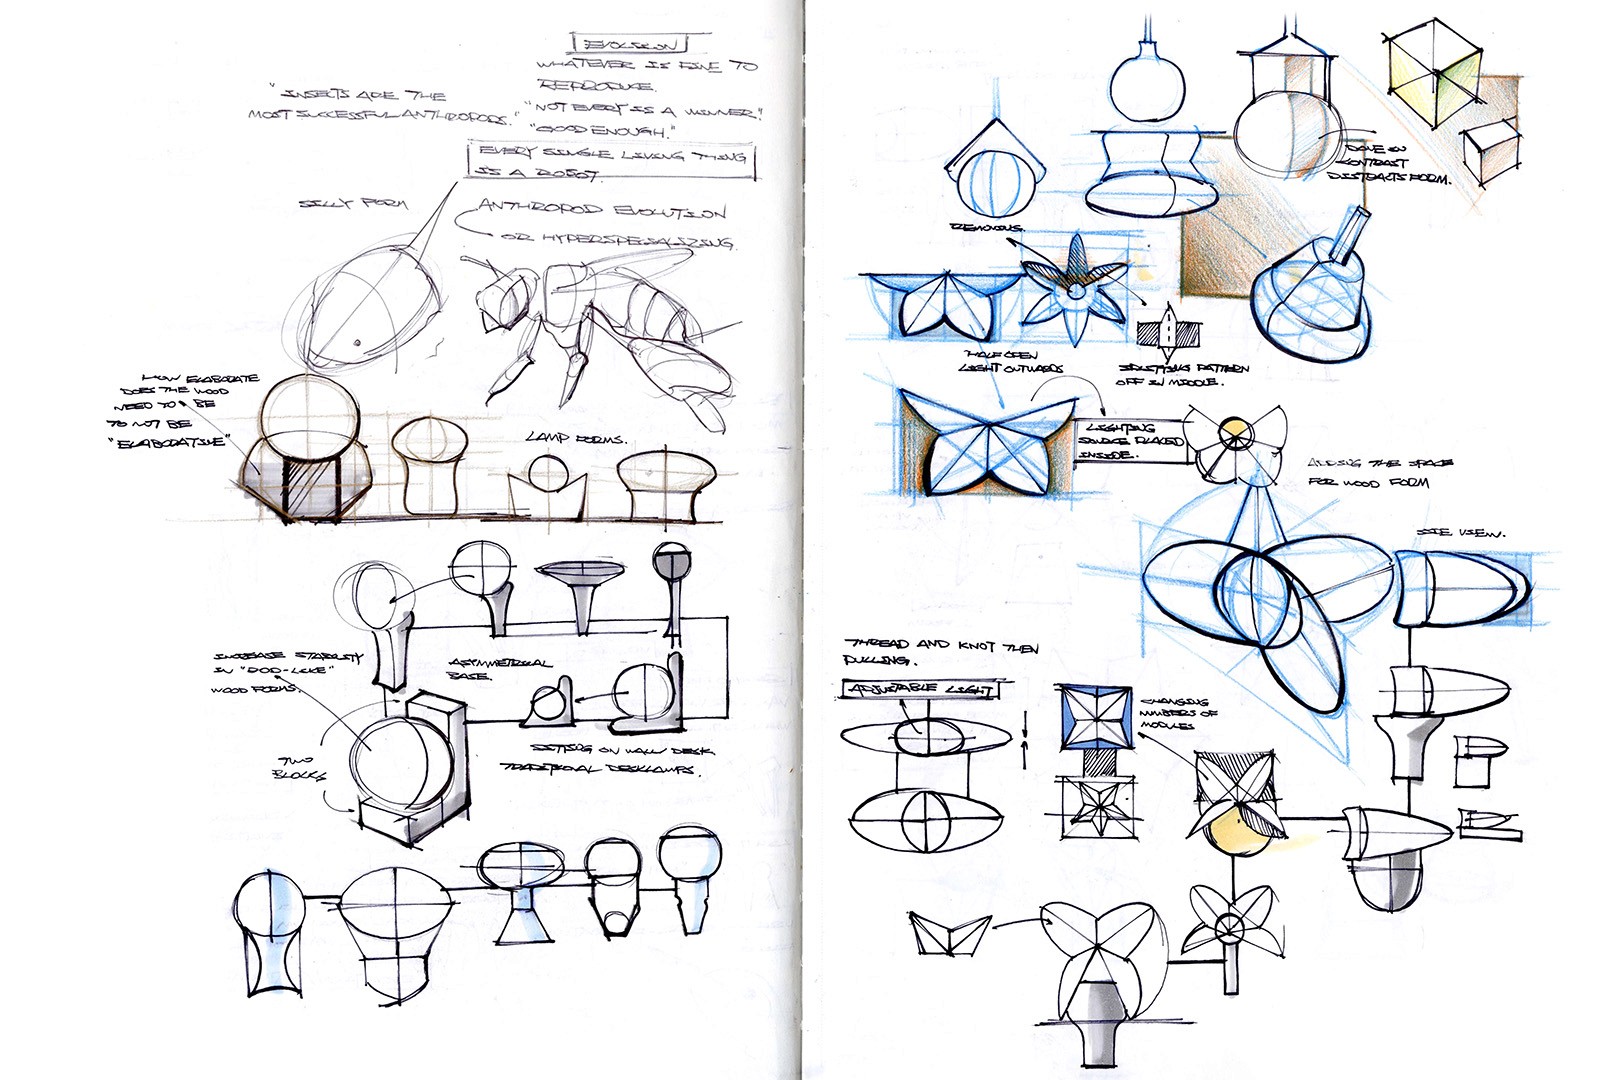 EVOLSION
WHATEVER IS FINE TO
REPRODUCE.
"NOT EVERY IS A WINNER."
"GOOD ENOUGH."
"INSECTS ARE THE
MOST SUCCESSFUL ANTHROPODS."
EVERY SINGLE LIVING THING
IS A ROBOT.
SILLY FORM
ANTHROPOD EVOLUTION
OR HYPERSPEISALIZING.
HOW ELABORATE
DOES THE WOOD
NEED TO BE
TO NOT BE
"ELABORATIVE"
LAMP FORMS.
INCREASE STABILITY
IN "ROD-LIKE"
WOOD FORMS.
ASYMMETRICAL
BASE.
TWO
BLOCKS
SITTING ON WALL DESK
TRADITIONAL DESKLAMPS.
DONE IN
CONTRAST
DISTRACTS FORM.
REMOVING.
HALF OPEN
LIGHT OUTWARDS
SPLITTING PATTERN
OFF IN MIDDLE.
LIGHTING
SOURCE PLACED
INSIDE.
ADDING THE SPACE
FOR WOOD FORM
SIDE VIEW.
THREAD AND KNOT THEN
PULLING.
ADJUSTABLE LIGHT
CHANGING
NUMBERS OF
MODULES